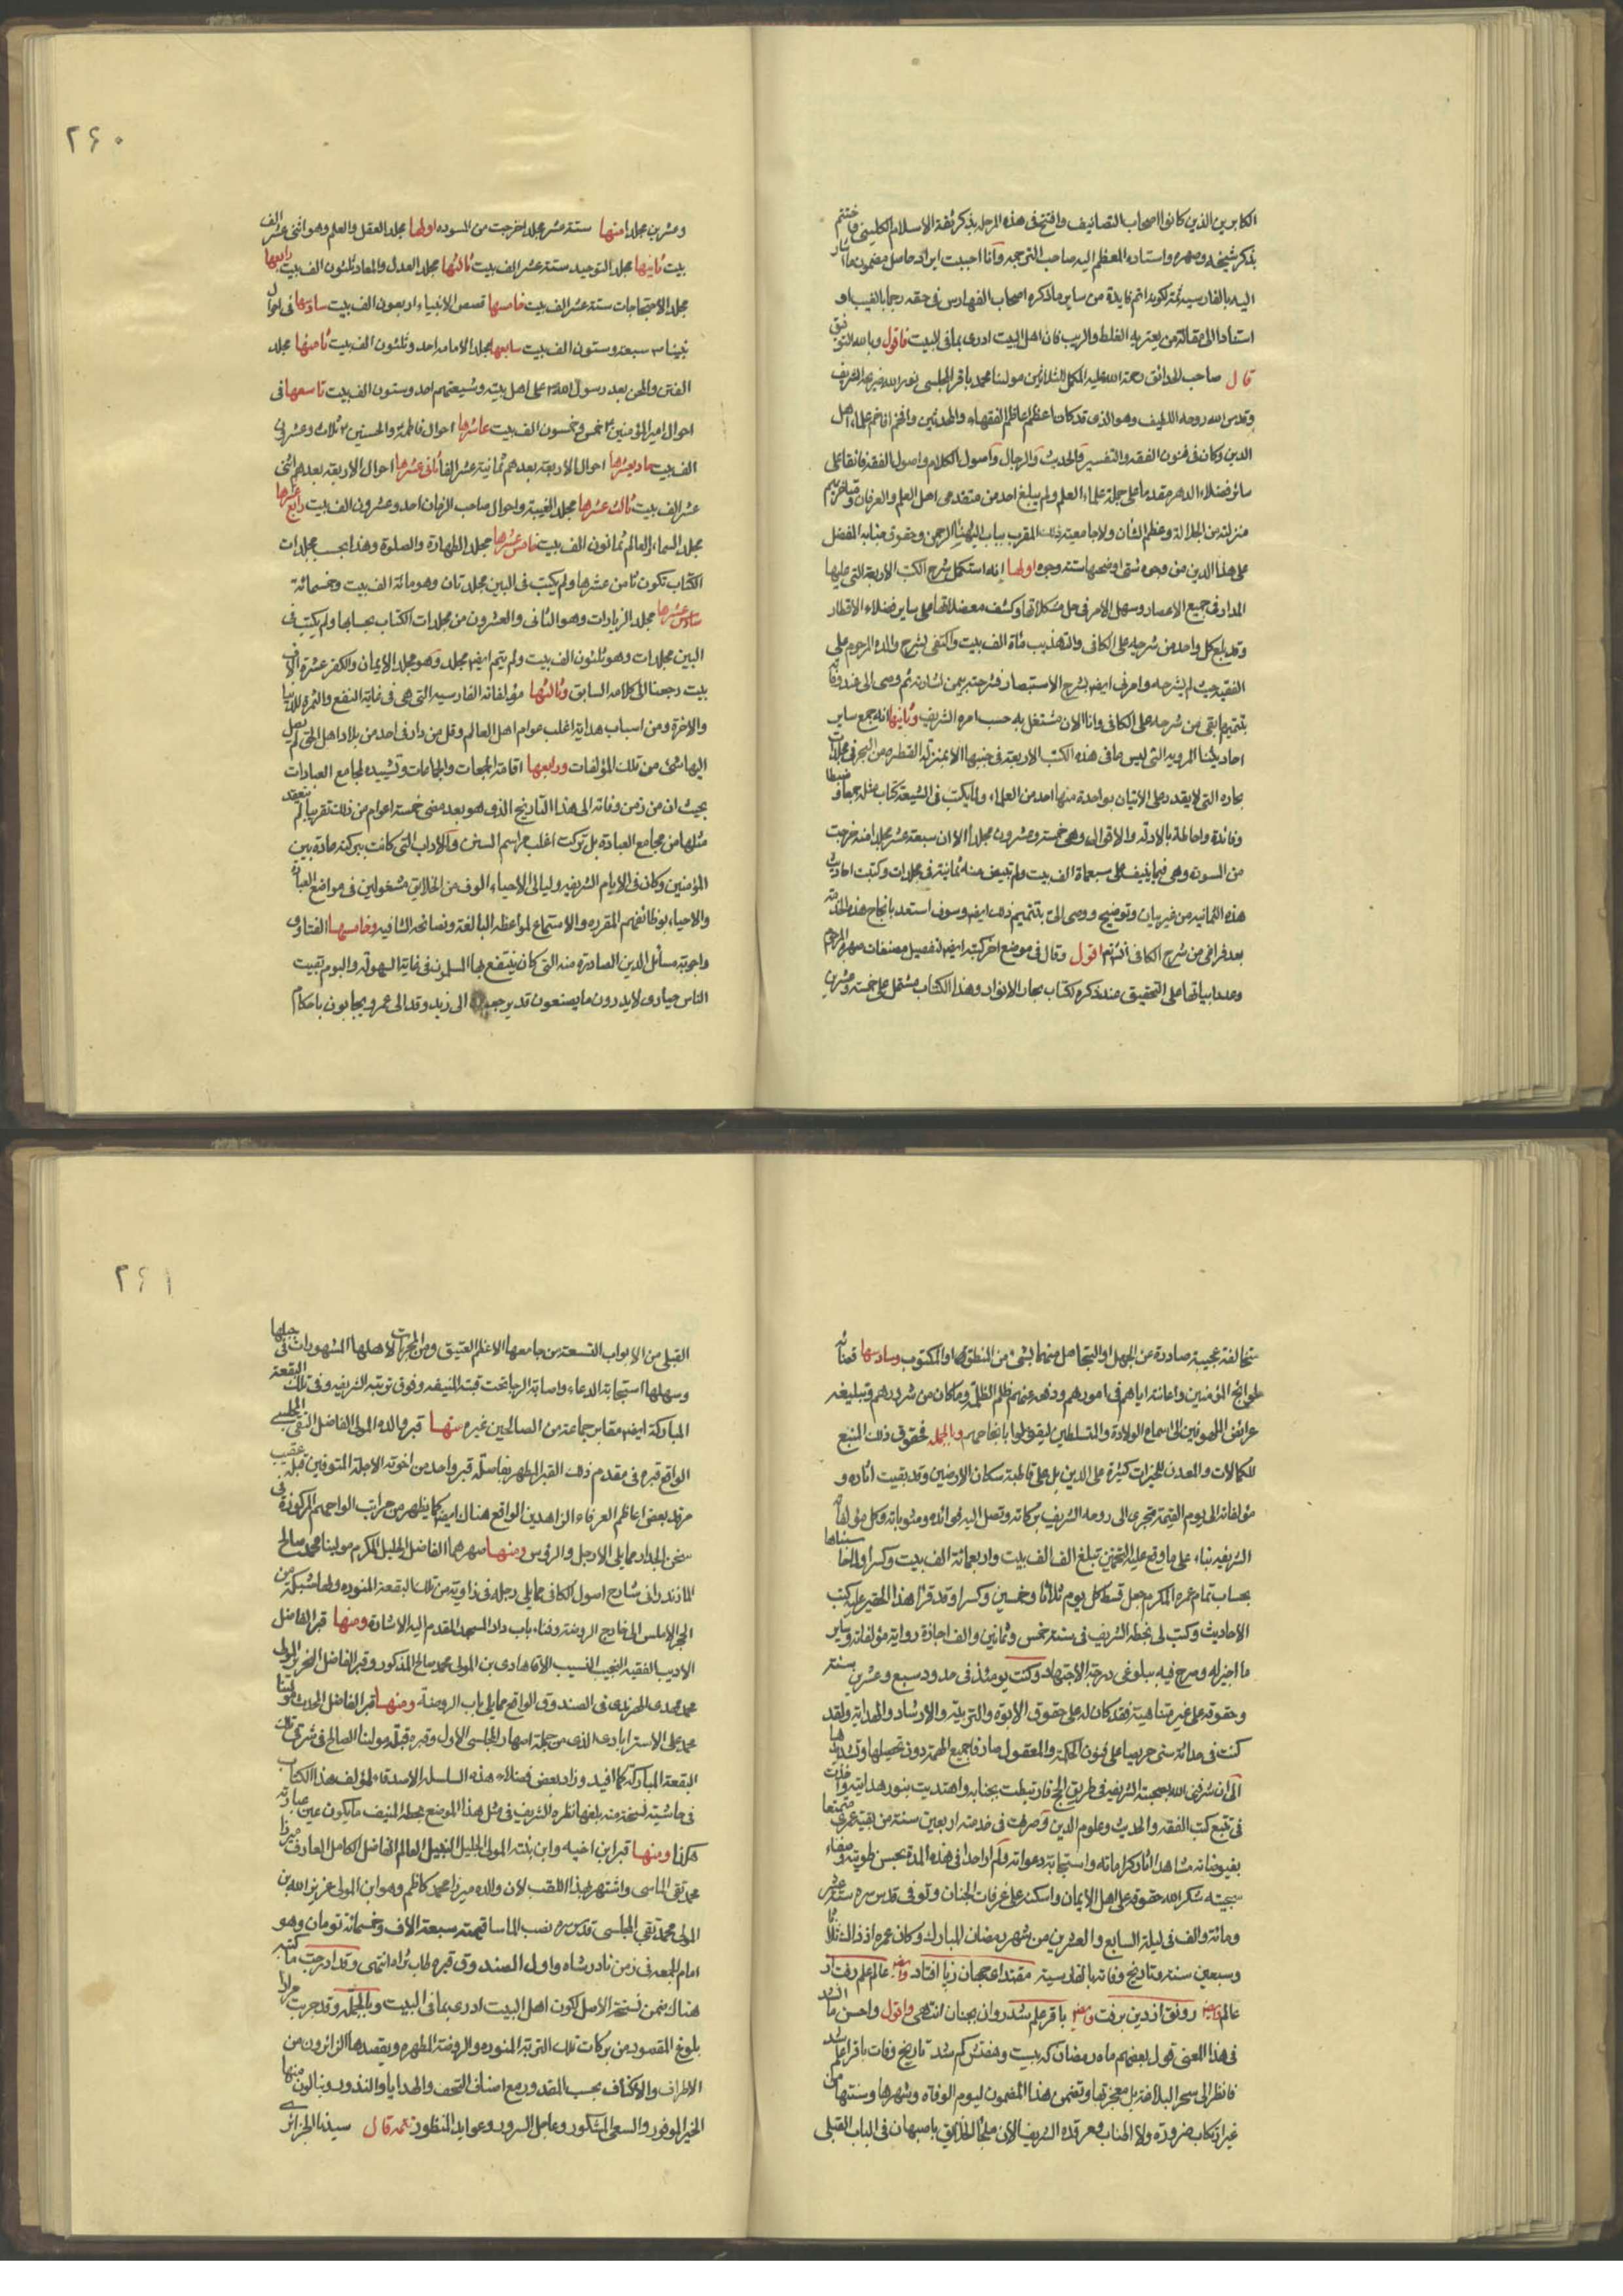 الكابرين الذين كانوا اصحاب التصانيف وافتتح فى هذه المرحله بذكر ثقة الاسلام الكلينى واختتم
بذكر شيخه وصهره واستاده المعظم اليه صاحب الترجمه وأنا احببت ايراد حاصل مضمون ما اشار
اليه بالفارسيه ثمة لكونه اتم فايدة من ساير ما ذكره اصحاب الفهارس فى حقه رجما بالغيب او
استنادا الى مقالة من يعتريه الغلط والريب فان اهل البيت ادرى بما فى البيت فاقول وبالله التوفيق
قال صاحب الحدائق رحمة الله عليه المكمل للثلاثين مولينا محمد باقر المجلسى نور الله ضريحه الشريف
وقدس الله روحه اللطيف وهو الذى قد كان اعظم اعاظم الفقهاء والمحدثين وافخم افاخم علماء اهل
الدين وكان فى فنون الفقه والتفسير والحديث والرجال وأصول الكلام واصول الفقه فائقا على
سائر فضلاء الدهر مقدما على جملة علماء العلم ولم يبلغ احد من متقدمى اهل العلم والعرفان ومتاخريهم
منزلته من الجلالة وعظم الشان ولا جامعيته ذلك المقرب بباب الهنا الرحمن وحقوق جنابه المفضل
على هذا الدين من وجوه شتى اوضحها ستة وجوه اولها إنه استكمل شرح الكتب الاربعة التى عليها
المدار فى جميع الاعصار وسهل الامر فى حل مشكلاتها وكشف معضلاتها على ساير فضلاء الاقطار
وقد بلغ كل واحد من شرحيه على الكافى والتهذيب مأة الف بيت واكتفى بشرح والده المرحوم على
الفقيه حيث لم يشرحه وامرنى ايضا بشرح الاستبصار فشرحته بيمن اشارته ثم وصى الى عند وفاته
بتتميم ما بقى من شرحه على الكافى وانا الان مشتغل به حسب امره الشريف وثانيها انه جمع ساير
احاديثنا المرويه التى ليس ما فى هذه الكتب الاربعة فى جنبها الا بمنزلة القطره من البحر فى مجلدات
بحاره التى لا يقدر على الاتيان بواحدة منها احد من العلماء ولما يكتب فى الشيعة كتاب مثله جمعا وضبطا
وفائدة واحاطة بالادلة والاقوال وهى خمسة وعشرون مجلدا الا ان سبعة عشر مجلدا منه خرجت
من السوده وهى فيما ينيف على سبعمأة الف بيت ولم تبيض منه ثمانية فى مجلدات وكتبت احاديث
هذه الثمانيه من غير بيان وتوضيح ووصى الىّ بتتميم ذلك ايضا وسوف استعد بانجاح هذه الخدمة
بعد فراغى من شرح الكافى انشاالله اقول وقال فى موضع اخر كتبه ايضا لتفصيل مصنفات صهره المرحوم
وعدد ابياتها على التحقيق عند ذكره لكتاب بحار الانوار وهذا الكتاب مشتمل على خمسة وعشرين
٢٦٠
وعشرين مجلدا منها ستة عشر مجلدا خرجت من المسوده اولها مجلد العقل والعلم وهو اثنى عشر الف
بيت ثانيها مجلد التوحيد ستة عشر الف بيت ثالثها مجلد العدل والمعاد ثلثون الف بيت رابعها
مجلد الاحتجاجات ستة عشر الف بيت خامسها قصص الانبياء اربعون الف بيت سادسها فى احوال
نبينا ص سبعة وستون الف بيت سابعها مجلد الامامه احد وثلثون الف بيت ثامنها مجلد
الفتن والمحن بعد رسول الله ص على اهل بيته وشيعتهم احد وستون الف بيت تاسعها فى
احوال امير المؤمنين ع خمس وخمسون الف بيت عاشرها احوال فاطمه ع والحسنين ع ثلاث وعشرون
الف بيت حاديعشرها احوال الاربعة بعدهم ثمانية عشر الفا ثانى عشرها احوال الاربعة بعدهم اثنى
عشر الف بيت ثالث عشرها مجلد الغيبة واحوال صاحب الزمان احد وعشرون الف بيت رابع عشرها
مجلد السماء والعالم ثمانون الف بيت خامس عشرها مجلد الطهارة والصلوة وهذا بحسب مجلدات
الكتاب تكون ثامن عشرها ولم يكتب فى البين مجلد تان وهو مائة الف بيت وخمسمائة
سادس عشرها مجلد الزيارات وهو الثانى والعشرون من مجلدات الكتاب بحسابها ولم يكتب فى
البين مجلدات وهو ثلثون الف بيت ولم يتمم ايضا مجلد وهو مجلد الايمان والكفر عشرة الاف
بيت رجعنا الى كلامه السابق وثالثها مؤلفاته الفارسيه التى هى فى غاية النفع والثمرة للدنيا
والاخرة ومن اسباب هداية اغلب عوام اهل العالم وقل من دار فى احد من بلاد اهل الحق لم يصل
اليها شئ من تلك المؤلفات ورابعها اقامة الجمعات والجماعات وتشييده لمجامع العبادات
بحيث ان من زمن وفاته الى هذا التاريخ الذى هو بعد مضى خمسة اعوام من ذلك تقريبا لم ينعقد
مثلها من مجامع العبادة بل تركت اغلب مراسم السنن والآداب التى كانت ببركته عادة بين
المؤمنين وكان فى الايام الشريفه وليالى الاحياء الوف من الخلايق مشغولين فى مواضع العبادة
والاحياء بوظائفهم المقرره والاستماع لمواعظه البالغة ونصائحه الشافيه وخامسها الفتاوى
واجوبة مسائل الدين الصادرة منه التى كان ينتفع بها المسلمون فى غاية السهوله واليوم بقيت
الناس حيارى لا يدرون ما يصنعون قد يرجعون الى زيد وقد الى عمرو يجابون باحكام
متخالفة عجيبة صادرة عن الجهل او التجاهل منهما بشئ من المنطوق لها او المكتوب وسادسها قضائه
لحوائج المؤمنين واعانته اياهم فى امورهم ودفعه عنهم ظلم الظلمة وما كان من شرورهم وتبليغه
عرايض الملهوفين الى اسماع الولاة والمتسلطين ليقوموا بانجاحهم وبالجمله فحقوق ذلك المنبع
للكمالات والمعدن للخيرات كثيرة على الدين بل على قاطبة سكان الارضين وقد بقيت اثاره و
مؤلفاته الى يوم القيمة فتجرى الى روحه الشريف بركاته وتصل اليه فوائده ومثوباته وكل مؤلفاته
الشريفه بناء على ما وقع عليه التخمين تبلغ الف الف بيت واربعمائة الف بيت وكسرا ولما حسبناها
بحساب تمام عمره المكرم جعل قسط كل يوم ثلاثا وخمسين وكسرا وقد قرأ هذا الحقير عليه كتب
الاحاديث وكتب لى بخطه الشريف فى سنة خمس وثمانين والف اجازة رواية مؤلفاته وساير
ما اجيز له وصرح فيه ببلوغى درجة الاجتهاد وكنت يومئذ فى حدود سبع وعشرين سنة
وحقوقه على غير متناهية فقد كان له على حقوق الابوة والتربية والارشاد والهداية ولقد
كنت فى حداثة سنى حريصا على فنون الحكمة والمعقول صارفا جميع الهمة دون تحصيلها وتشييدها
الى ان شرفنى الله بصحبته الشريفه فى طريق الحج فارتبطت بجنابه واهتديت بنور هدايته واخذت
فى تتبع كتب الفقه والحديث وعلوم الدين وصرفت فى خدمته اربعين سنة من بقية عمرى متمتعا
بفيوضاته مشاهدا اثار كراماته واستجابة دعواته ولم ار احدا فى هذه المدة بحسن طويته وصفاء
سجيته شكر الله حقوقه على اهل الايمان واسكنه على غرفات الجنان وتوفى قدس سره سنة عشر
ومائة والف فى ليلة السابع والعشرين من شهر رمضان المبارك وكان عمره اذ ذاك ثلاثا
وسبعين سنة وتاريخ وفاته بالفارسية مقتداى جهان زپا افتاد وايضا عالم علم رفت از
عالم وايضا رونق از دين برفت وايضا باقر علم شد روان بجنان انتهى واقول واحسن ما انشد
فى هذا المعنى قول بعضهم ماه رمضان كه بيست وهفتش كم شد تاريخ وفات باقر اعلم شد
فانظر الى سحر البلاغة بل معجزتها وتضمن هذا المضمون ليوم الوفاة وشهرها وسنتها من
غير ارتكاب ضرورة ولا اطناب ومرقده الشريف الان ملجأ الخلايق باصبهان فى الباب القبلى
٢٦١
القبلى من الابواب التسعة من جامعها الاعظم العتيق ومن المجربات لاهلها المشهورات فى جبلها
وسهلها استجابة الدعاء واصابة الرجا تحت قبته المنيفه وفوق تربته الشريفه وفى تلك البقعة
المباركة ايضا مقابر جماعة من الصالحين غيره منها قبر والده المولى الفاضل التقى المجلسى
الواقع قبره فى مقدم ذلك القبر المطهر بفاصلة قبر واحد من اخوته الاجلة المتوفين قبله عقيب
مرقد بعض اعاظم العرفاء الزاهدين الواقع هناك ايضا كما يظهر من مراتب الواحهم المركوزة فى
سخن الجدار مما يلى الارجل والرؤس ومنها صهرهما الفاضل الجليل المكرم مولينا محمد صالح
المازندرانى شارح اصول الكافى مما يلى رجله فى زاوية من تلك البقعة المنوره ولها شبكة من
الحجر الاملس الى خارج الروضة وفناء باب دار المسجد المقدم اليه الاشارة ومنها قبر الفاضل
الاديب الفقيه النجيب النسيب الآقا هادى بن المولى محمد صالح المذكور وقبر الفاضل النحرير المولى
محمد مهدى الهرندى فى الصندوق الواقع مما يلى باب الروضة ومنها قبر الفاضل المحدث مولينا
محمد على الاسترابادى الذى من جملة اصهار المجلسى الاول وقبره قبلة مولينا الصالح فى شرقى تلك
البقعة المباركة كما افيد وزاد بعض فضلاء هذه السلسلة الاصدقاء لمؤلف هذا الكتاب
فى حاشية نسخة منه بلغها نظره الشريف فى مثل هذا الموضع بخطه المنيف ما يكون عين عبارته
هكذا ومنها قبر ابن اخيه وابن بنته المولى الجليل النبيل العالم الفاضل الكامل العارف ميرزا
محمد تقى الماسى واشتهر بهذا اللقب لان والده ميرزا محمد كاظم وهو ابن المولى عزيز الله بن
المولى محمد تقى المجلسى قدس سره نصب الماسا قيمته سبعة الاف وخمسمائة تومان وهو
امام الجمعه فى زمن نادر شاه واول الصندوق قبره طاب ثراه انتهى وقد ادرجت ما كتبه
هناك ضمن نسخة الاصل لكون اهل البيت ادرى بما فى البيت وبالجمله وقد جربت مرارا
بلوغ المقصود من بركات تلك التربة المنوره والروضة المطهره ويقصدها الزائرون من
الاطراف والاكناف بحسب المقدور مع اصناف التحف والهدايا والنذور وينالون منها
الخير الموفور والسعى المشكور وعاجل السرور وعوايد المنظور ثمه قال سيدنا الجزائرى